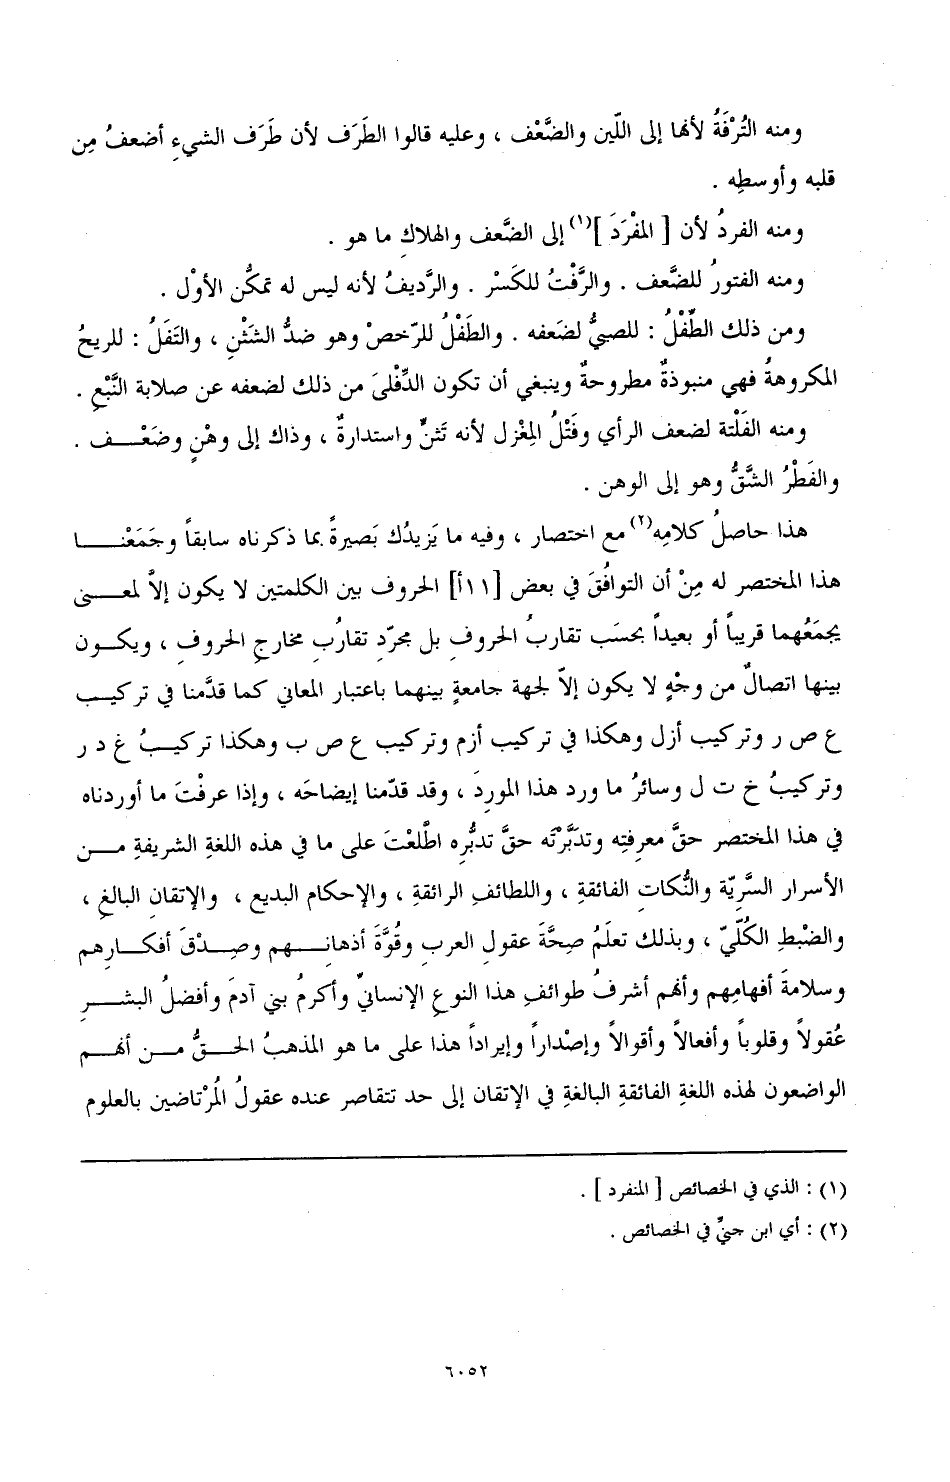 ومنه التُرْفَةُ لأنها إلى اللّين والضَّعْف ، وعليه قالوا الطَرَف لأن طَرَف الشيءِ أضعفُ مِن
قلبه وأوسطِه .
ومنه الفردُ لأن [ المفْرَدَ ](١) إلى الضَّعف والهلاكِ ما هو .
ومنه الفتورُ للضَّعف . والرَّفْتُ للكَسْر . والرَّديفُ لأنه ليس له تمكُّن الأوْل .
ومن ذلك الطِّفْلُ : للصبيُّ لضَعفه . والطَفْلُ للرّخصْ وهو ضدُّ الشَثْنِ ، والتَفَلُ : للريحُ
المكروهةُ فهي منبوذةٌ مطروحةٌ وينبغي أن تكون الدِّفْلىَ من ذلك لضعفه عن صلابة النَّبْعِ .
ومنه الفَلْتة لضعف الرأي وفَتْلُ المِغْزل لأنه تَثنٍّ واستدارةٌ ، وذاك إلى وهْنٍ وضَعْــف .
والفَطْرُ الشَّقُّ وهو إلى الوهن .
هذا حاصلُ كلامِه(٢) مع اختصار ، وفيه ما يَزيدُك بَصيرةً بما ذكرناه سابقاً وجَمَعْنـــا
هذا المختصر له مِنْ أن التوافُقَ في بعض [١١أ] الحروف بين الكلمتين لا يكون إلاَّ لمعـــنى
يجمَعُهما قريباً أو بعيداً بحسَب تقاربُ الحروفِ بل مجرّدِ تقارُبِ مخارجِ الحروفِ ، ويكــون
بينها اتصالٌ من وجْهٍ لا يكون إلاّ لجهة جامعةٍ بينهما باعتبار المعاني كما قدَّمنا في تركيــب
ع ص ر وتركيب أزل وهكذا في تركيب أزم وتركيب ع ص ب وهكذا تركيــبُ غ د ر
وتركيبُ خ ت ل وسائرُ ما ورد هذا الموردَ ، وقد قدّمنا إيضاحَه ، وإذا عرفْتَ ما أوردناه
في هذا المختصر حقَّ معرفتِه وتدَبَّرْتَه حقَّ تدبُّره اطَّلعْتَ على ما في هذه اللغةِ الشريفةِ مــن
الأسرار السَّريّة والنُّكات الفائقةِ ، واللطائفِ الرائقةِ ، والإحكام البديع ، والإتقانِ البالغِ ،
والضْبطِ الكُلّيِّ ، وبذلك تعلَمُ صِحَّةَ عقول العرب وقُوَّةَ أذهانــهم وصِــدْقَ أفكــارِهم
وسلامةَ أفهامِهم وأنهم أشرفُ طوائفِ هذا النوعِ الإنسانيِّ وأكرمُ بني آدمَ وأفضلُ البشــرِ
عُقولاً وقلوباً وأفعالاً وأقوالاً وإصْداراً وإيراداً هذا على ما هو المذهبُ الحــقُّ مــن أنهــم
الواضعون لهذه اللغةِ الفائقةِ البالغةِ في الإتقان إلى حد تتقاصر عنده عقولُ المُرْتاضين بالعلوم
(١) : الذي في الخصائص [ المنفرد ] .
(٢) : أي ابن جنيٍّ في الخصائص .
٦٠٥٢